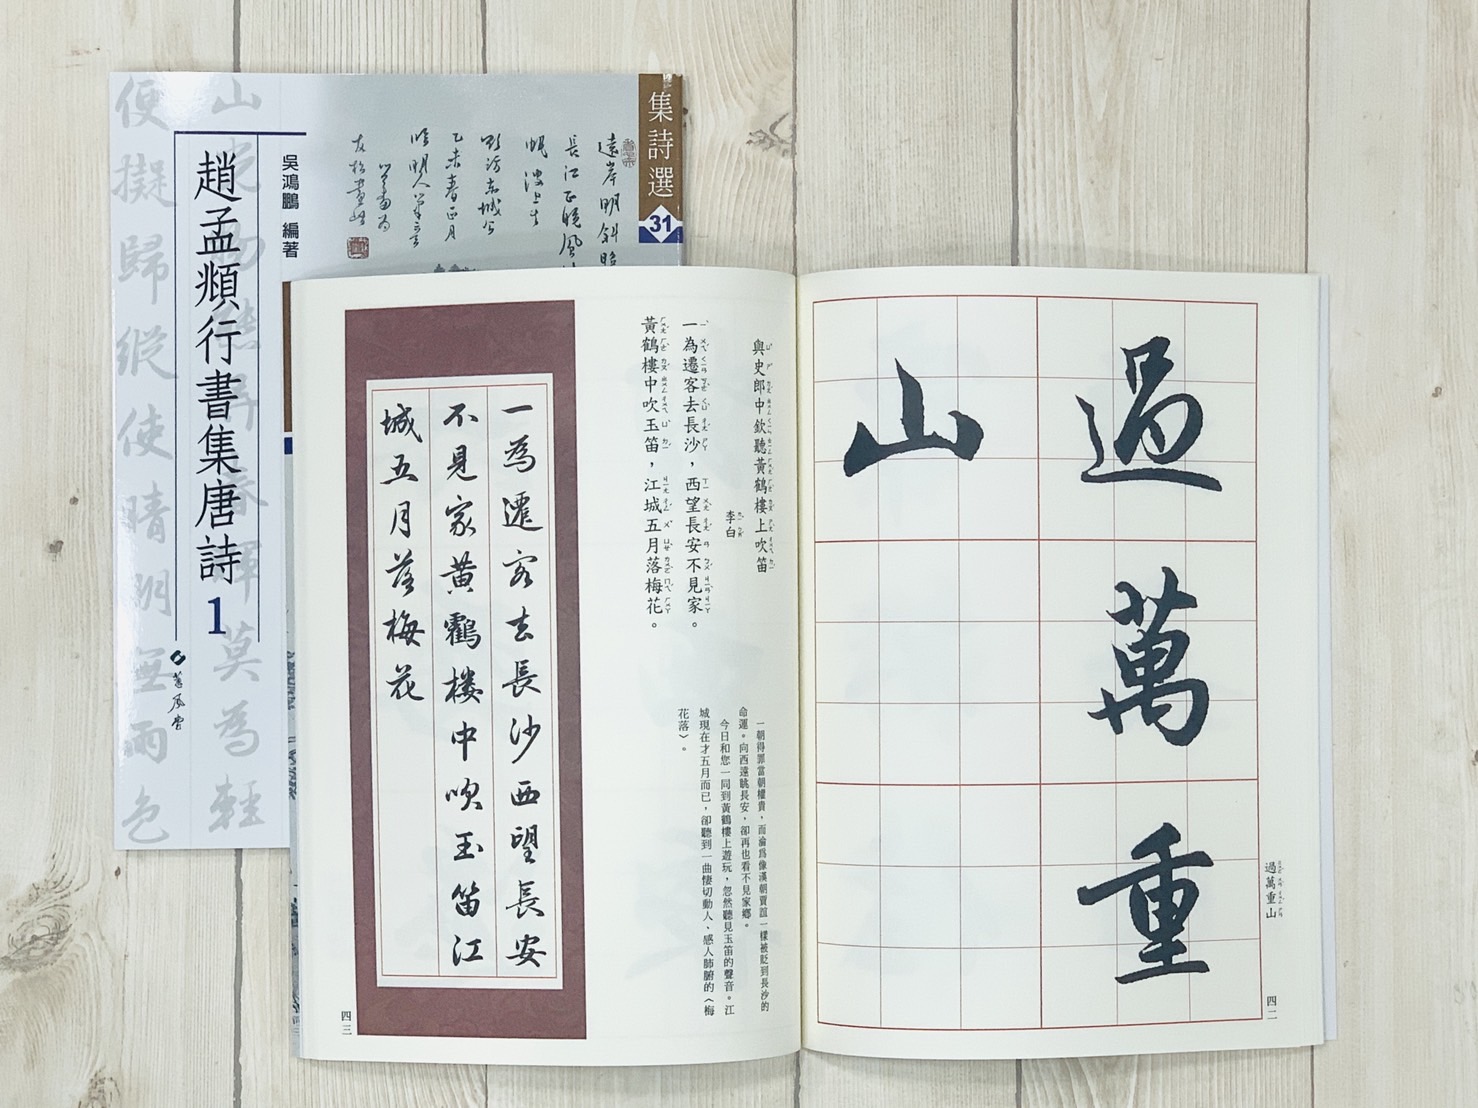 集詩選
31
遠岸明斜
長江正曉風
帆波上
乙未春正月
趙孟頫行書集唐詩1
吳鴻鵬 編著
蕙風堂
山
為輕
便擬歸
縱使晴明無雨色
過萬重
山
過萬重山
四二
與史郎中欽聽黃鶴樓上吹笛
李白
一為遷客去長沙，西望長安不見家。
黃鶴樓中吹玉笛，江城五月落梅花。
一朝得罪當朝權貴，而淪爲像漢朝賈誼一樣被貶到長沙的
命運。向西遠眺長安，卻再也看不見家鄉。
今日和您一同到黃鶴樓上遊玩，忽然聽見玉笛的聲音。江
城現在才五月而已，卻聽到一曲悽切動人、感人肺腑的〈梅
花落〉。
一為遷客去長沙西望長安
不見家黃鶴樓中吹玉笛江
城五月落梅花
四三